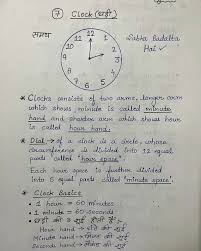 7 Clock (घड़ी)
समय
12
11 1
10 2
9 3
8 4
7 5
6
Wabta Badalta
Hai
* Clocks consists of two arms, longer arm
which shows minute is called minute
hand and shorter arm which shows hour
is called hour hand.
* Dial → of a clock is a circle, whose
circumference is divided into 12 equal
parts called "hour space".
Each hour space is further divided
into 5 equal parts called "minute space".
* Clock Basics
• 1 hour = 60 minutes
• 1 minute = 60 seconds
• घड़ी की सुई होती है:
Hour hand → घंटे की सुई
Minute hand → मिनट की सुई
Seconds hand → सेकंड की सुई